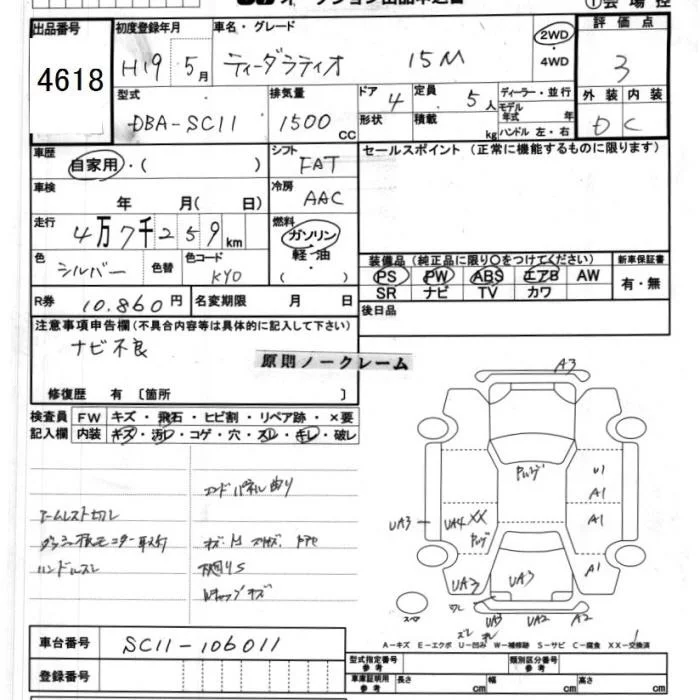 出品番号 初度登録年月 車名・グレード 2WD 評価点
4618 H19 5月 ティーダラティオ 15M ・4WD 3
型式 排気量 ドア 4 定員 5人 ディーラー・並行 外装 内装
DBA-SC11 1500cc 形状 積載 kg モデル年式 年 ハンドル 左・右 D C
車歴 自家用・( ) シフト FAT セールスポイント (正常に機能するものに限ります)
車検 年 月( 日) 冷房 AAC
走行 4万7千259km 燃料 ガソリン 軽・油 ・( )
色 シルバー 色替 色コード KY0 装備品 (純正品に限り〇をつけてください) 新車保証書
PS PW ABS エアB AW 有・無
SR ナビ TV カワ
R券 10,860円 名変期限 月 日 後日品
注意事項申告欄(不具合内容等は具体的に記入して下さい)
ナビ不良
原則ノークレーム
修復歴 有 〔箇所 〕
検査員 FW キズ・飛石・ヒビ割・リペア跡・×要
記入欄 内装 キズ・汚レ・コゲ・穴・スレ・キレ・破レ
コンドパネル曲り
アームレスト切レ
ハンドルスレ
Wキャップキズ
A3
U1
A1
UA3 UA4 XX A1
A1
UA3 UA3
UA3 UA2 A2
スペア
A-キズ E-エクボ U-凹み W-補修跡 S-サビ C-腐食 XX-交換済
車台番号 SC11-106011
型式指定番号 参考 類別区分番号 参考
登録番号 車庫証明用 参考 長さ cm 幅 cm 高さ cm